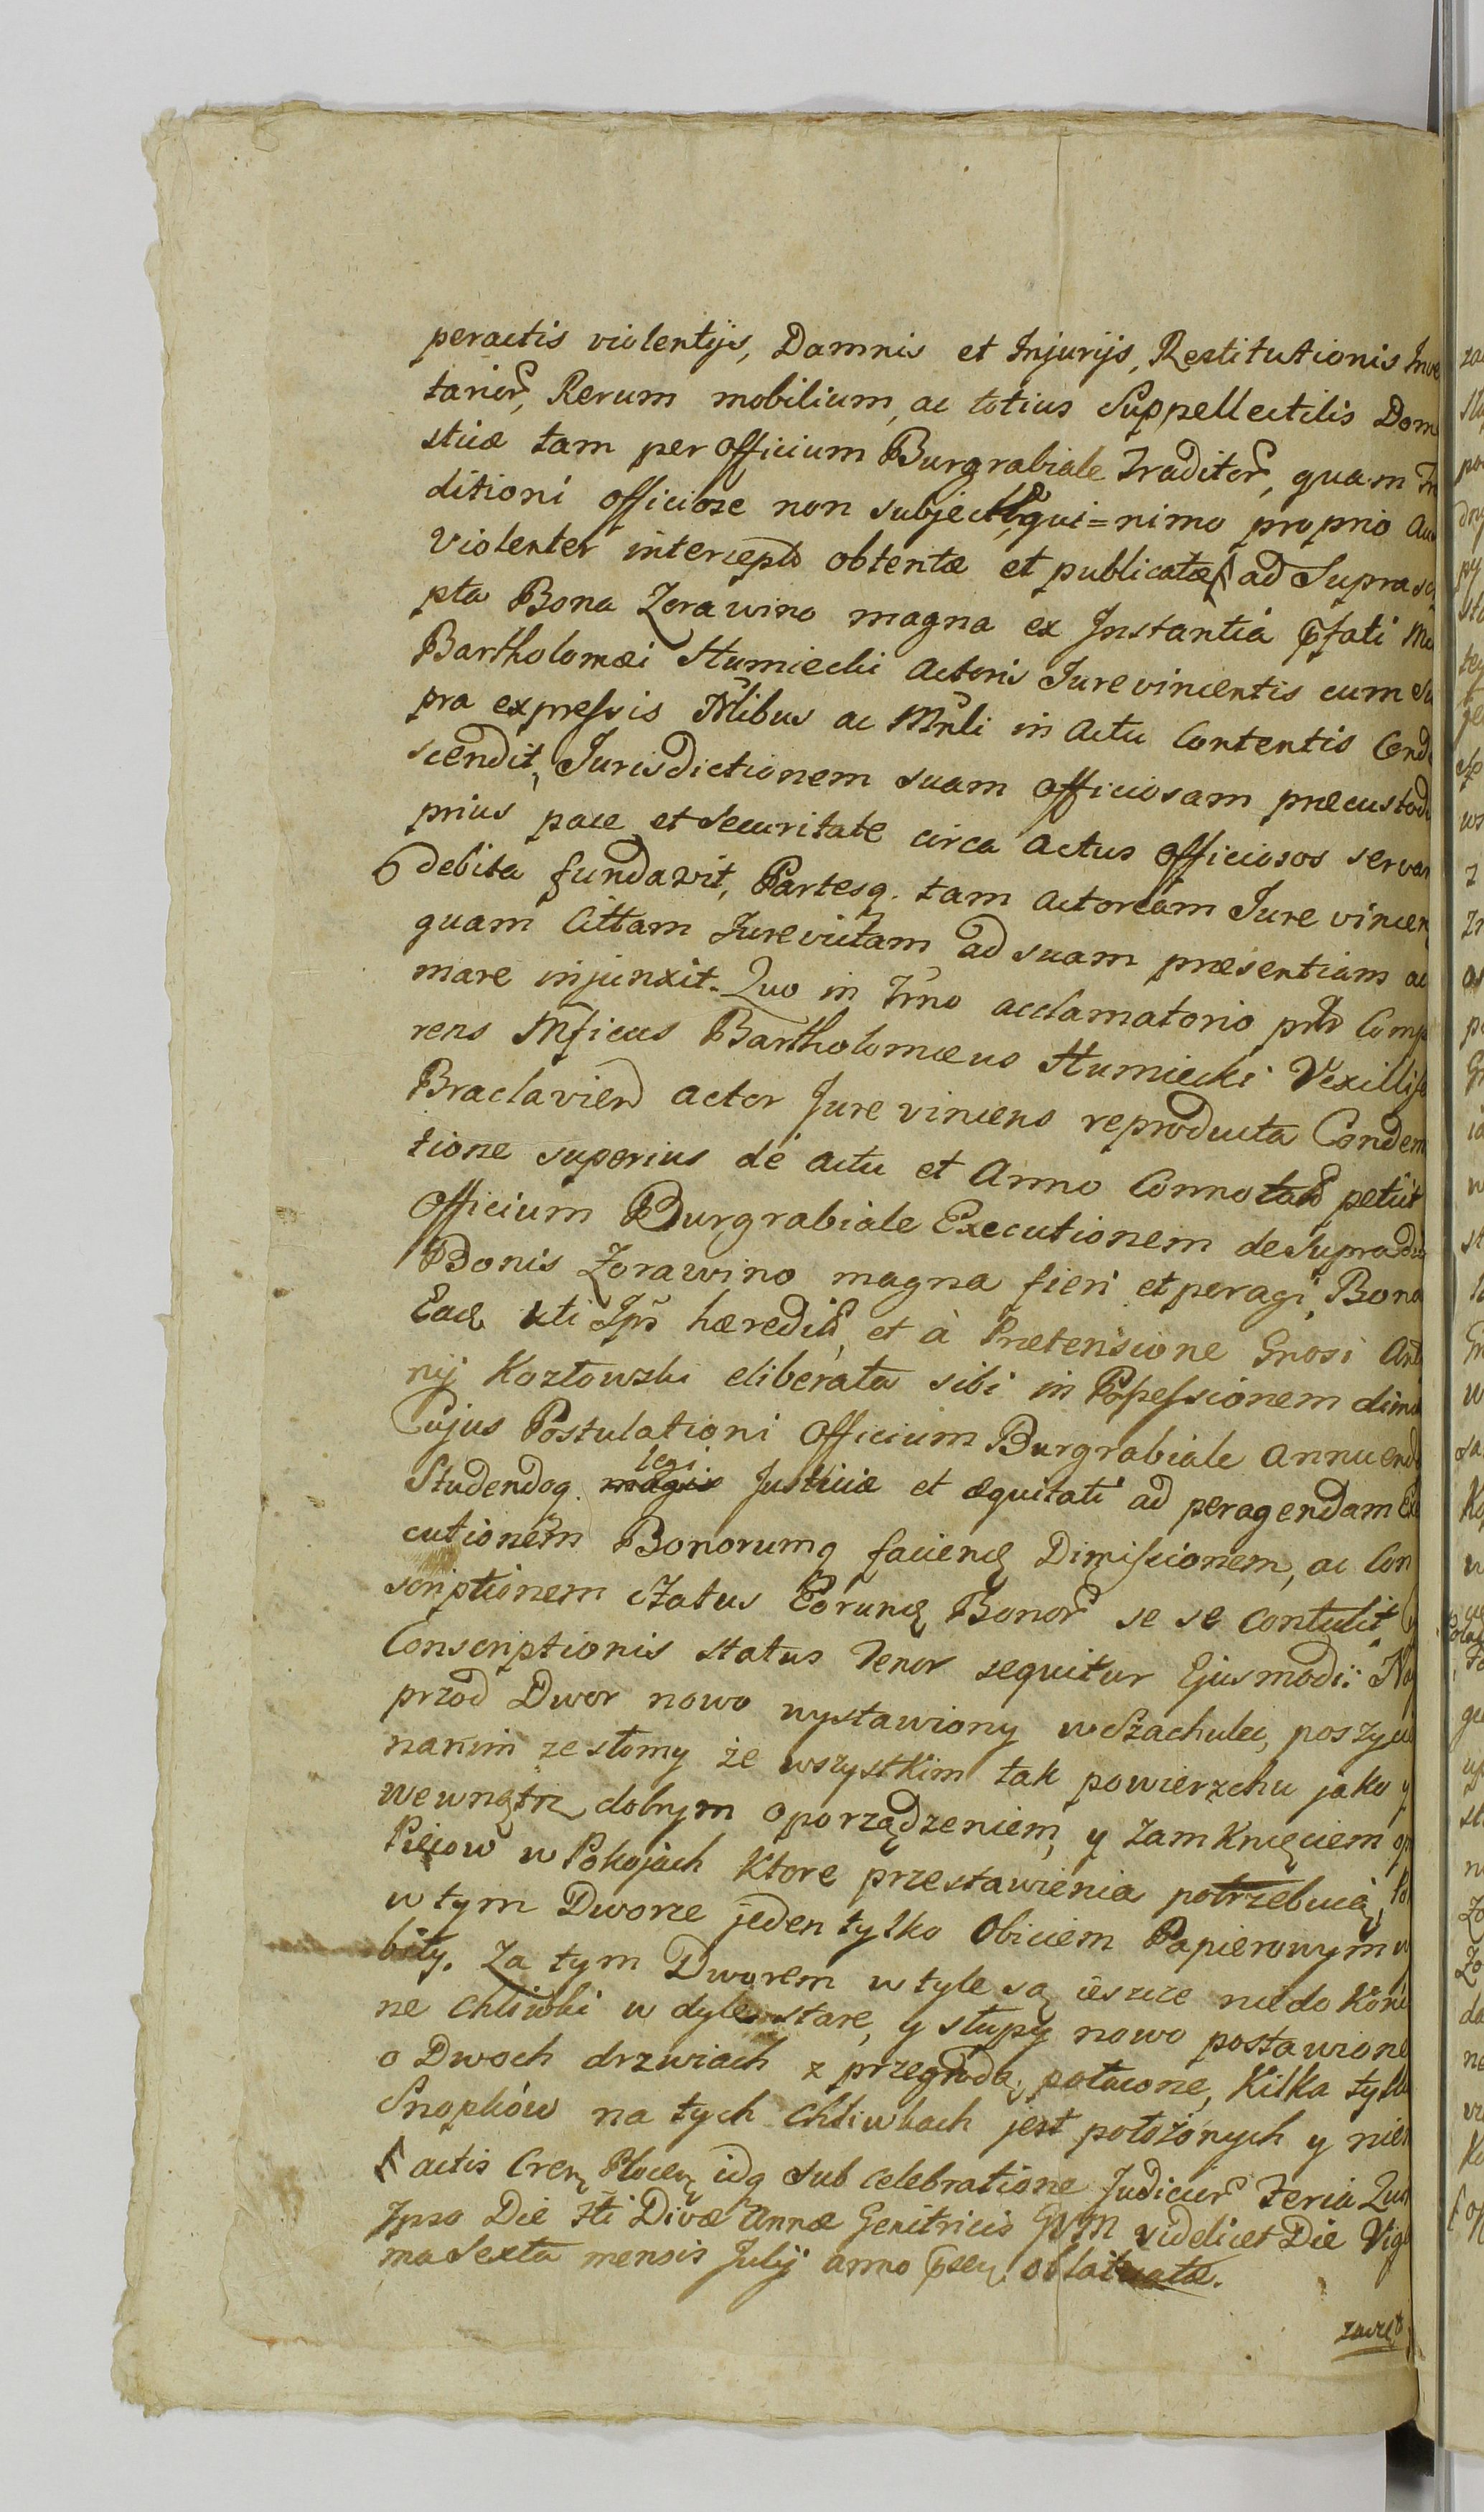 peractis violentijs, Damnis et Injurijs, Restitutionis Inve
tarior, Rerum mobilium, ac totius Suppellectilis Dom
sticæ tam per Officium Burgrabiale traditor, quam Tra
ditioni officiose non subject qui=nimo proprio au
violenter intercept obtentæ et publicatæ ad Suprascr
pta Bona Zorawino magna ex Instantia pfati M
Bartholomæi Humiecki Actoris Jurevincentis cum Su
pra expressis Nlibus ac Mnli in Actu Contentis Conde
scendit, Jurisdictionem suam Officiosam præcustodi
prius pace et Securitate circa Actus Officiosos servan
debita fundavit, Partesq. tam Actoream Jure vincen
quam Cittam Jurevictam ad suam præsentiam ac
mare injunxit. Quo in Trno acclamatorio pntr Compa
rens Mficus Bartholomæus Humiecki Vexillife
Braclavien Actor Jure vincens reproducta Condem
tione superius de actu et Anno Connotata petiit
Officium Burgrabiale Executionem de Supradic
Bonis Zorawino magna fieri et peragi, Bona
Ead uti Ipsi hæredit, et à Prætensione Gnosi Anto
nij Kozłowski eliberata sibi in Possessionem dimi
Cujus Postulationi Officium Burgrabiale Annuend
legi
Studendoq. magis Justitiæ et æquitati ad peragendam Exe
cutionem Bonorumq faciend Dimissionem, ac Con
scriptionem Status Eorund Bonor se se contulit
Conscriptionis status tenor sequitur Ejusmodi: Nay
przod Dwor nowo wystawiony w Szachulec, poszyci
nakim ze słomy ze wszystkim tak powierzchu jako y
wewnątrz dobrym oporządzeniem, y zamknięciem op
Pieców w Pokojach ktore przestawienia potrzebuią, Po
w tym Dworze jeden tylko Obiciem Papierowym w
bity. Za tym Dworem w tyle są ieszcze niedo Koń
ne Chliwki w dyle stare, y słupy nowo postawione
o Dwoch drzwiach z przegrodą, połacone, Kilka tylko
Snopków na tych Chliwkach jest położonych y nie
actis Cren Plocen idq Sub celebratione Judicior Feria Qu
Ipso Die Sti Divæ Annæ Genitricis BVM videlicet Die Vige
ma Sexta mensis Julij anno psen. oblat
zawrt